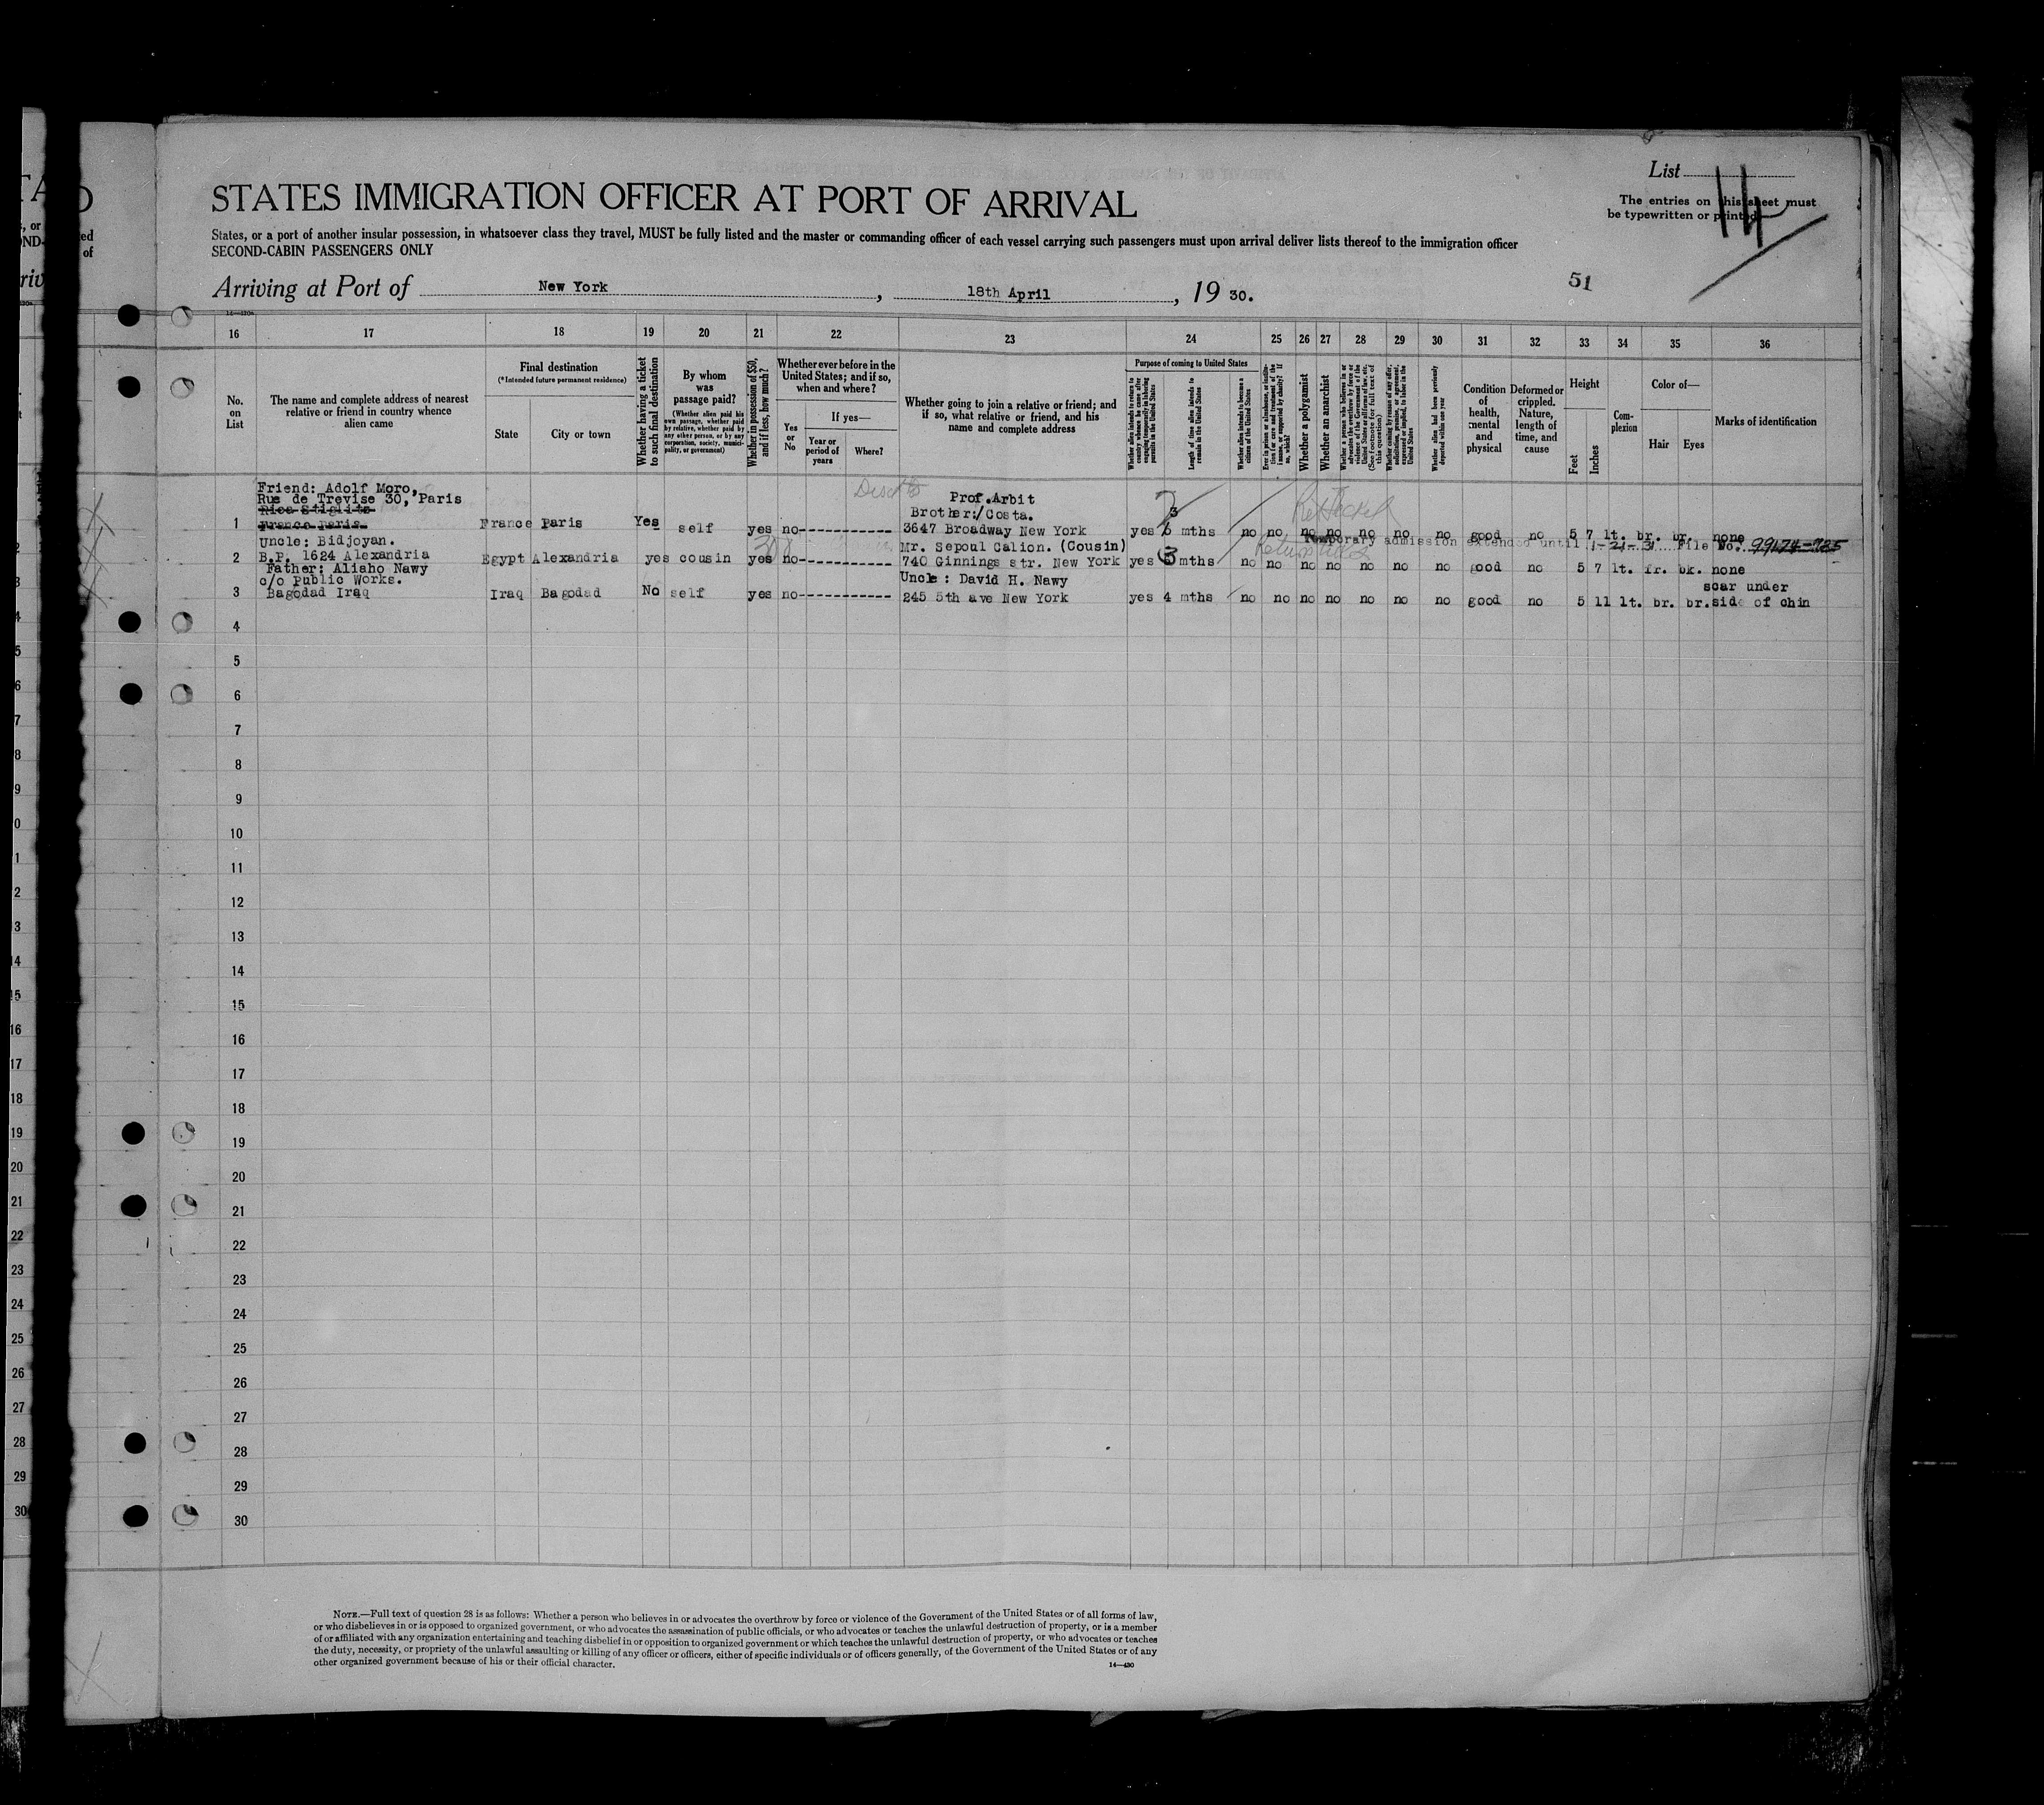 STATES IMMIGRATION OFFICER AT PORT OF ARRIVAL
States, or a port of another insular possession, in whatsoever class they travel, MUST be fully listed and the master or commanding officer of each vessel carrying such passengers must upon arrival deliver lists thereof to the immigration officer
SECOND-CABIN PASSENGERS ONLY
List 14
The entries on this sheet must
be typewritten or printed
51
Arriving at Port of New York, 18th April, 19 30.
16 17 18 19 20 21 22 23 24 25 26 27 28 29 30 31 32 33 34 35 36
No. on List
The name and complete address of nearest relative or friend in country whence alien came
Final destination
(*Intended future permanent residence)
State
City or town
Whether having a ticket to such final destination
By whom was passage paid?
(Whether alien paid his own passage, whether paid by relative, whether paid by any other person, or by any corporation, society, municipality, or government)
Whether in possession of $50, and if less, how much?
Whether ever before in the United States; and if so, when and where?
Yes or No
If yes—
Year or period of years
Where?
Whether going to join a relative or friend; and if so, what relative or friend, and his name and complete address
Purpose of coming to United States
Whether alien intends to return to country whence he came after engaging temporarily in laboring pursuits in the United States
Length of time alien intends to remain in the United States
Whether alien intends to become a citizen of the United States
Whether a polygamist
Whether an anarchist
Whether alien had been previously deported within one year
Condition of health, mental and physical
Deformed or crippled. Nature, length of time, and cause
Height
Feet
Inches
Complexion
Color of—
Hair
Eyes
Marks of identification
Friend: Adolf Moro,
Rue de Trevise 30, Paris
Rice Stiglitz
France Paris
1 France Paris Yes self yes no
Prof. Arbit
Brother:/Costa.
3647 Broadway New York
yes 3 mths no no no no no no no good no 5 7 lt. br. br. none
Temporary admission extended until 1-21-31 File No. 99174-725
Uncle: Bidjoyan.
2 B.P. 1624 Alexandria Egypt Alexandria yes cousin yes no
Mr. Sepoul Calion. (Cousin)
740 Ginnings str. New York
yes 3 mths no no no no no no no good no 5 7 lt. fr. bk. none
Father: Aliaho Nawy
c/o Public Works.
3 Bagodad Iraq Iraq Bagodad No self yes no
Uncle: David H. Nawy
245 5th ave New York
yes 4 mths no no no no no no no good no 5 11 lt. br. br.
scar under
side of chin
4
5
6
7
8
9
10
11
12
13
14
15
16
17
18
19
20
21
22
23
24
25
26
27
28
29
30
NOTE.—Full text of question 28 is as follows: Whether a person who believes in or advocates the overthrow by force or violence of the Government of the United States or of all forms of law,
or who disbelieves in or is opposed to organized government, or who advocates the assassination of public officials, or who advocates or teaches the unlawful destruction of property, or is a member
of or affiliated with any organization entertaining and teaching disbelief in or opposition to organized government or which teaches the unlawful destruction of property, or who advocates or teaches
the duty, necessity, or propriety of the unlawful assaulting or killing of any officer or officers, either of specific individuals or of officers generally, of the Government of the United States or of any
other organized government because of his or their official character.
14—430